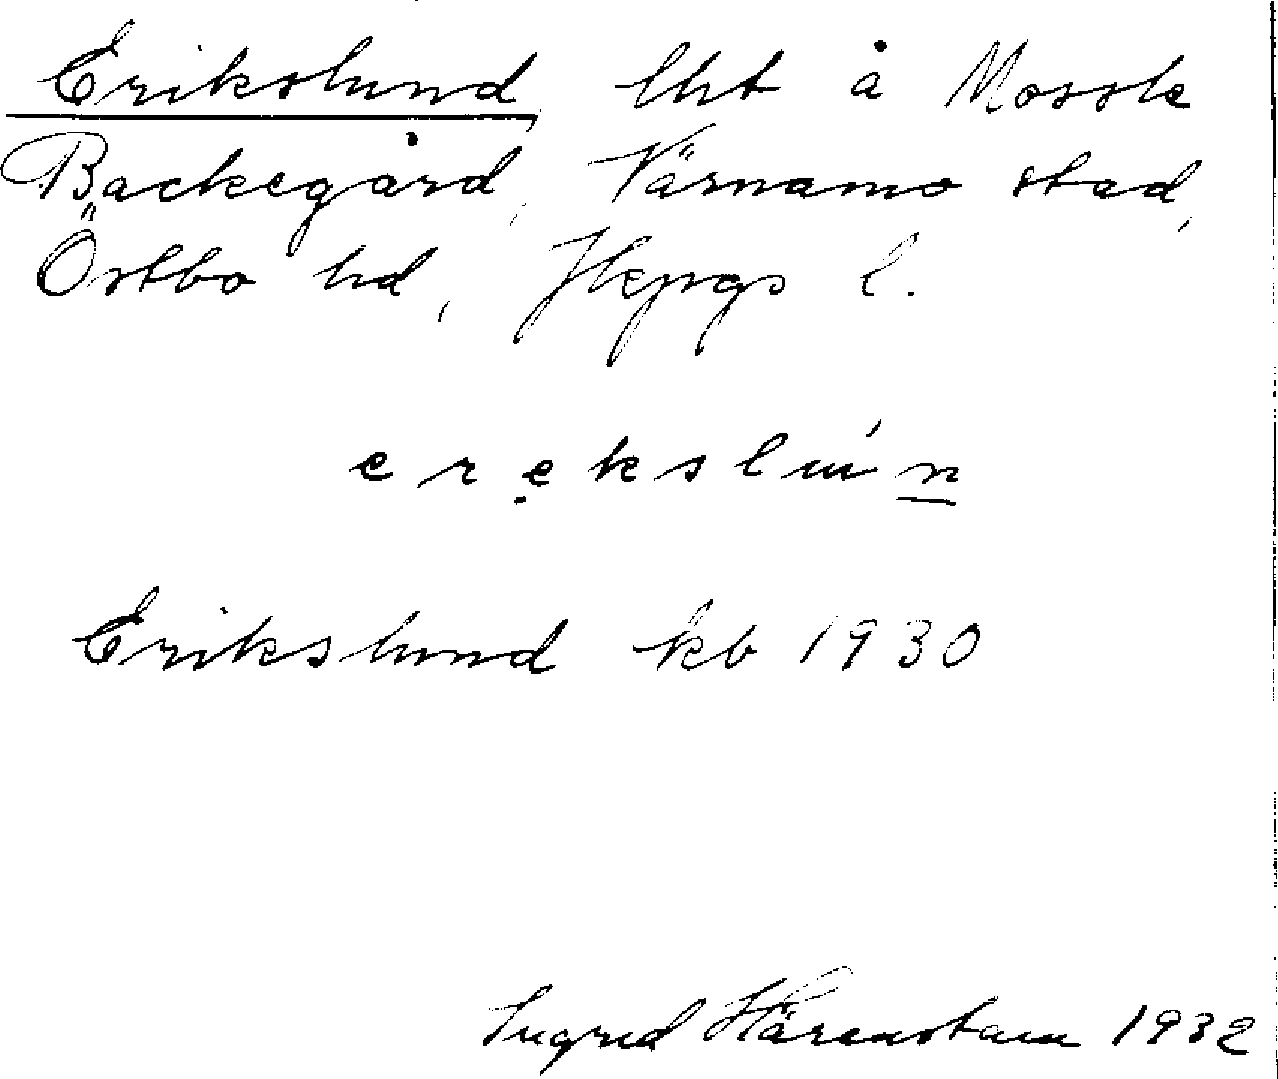 Erikslund, lht å Mossle
Backegård, Värnamo stad,
Östbo hd, Jkpgs l.
erẹkslúṉ
Erikslund kb 1930
Ingrid Härenstam 1932